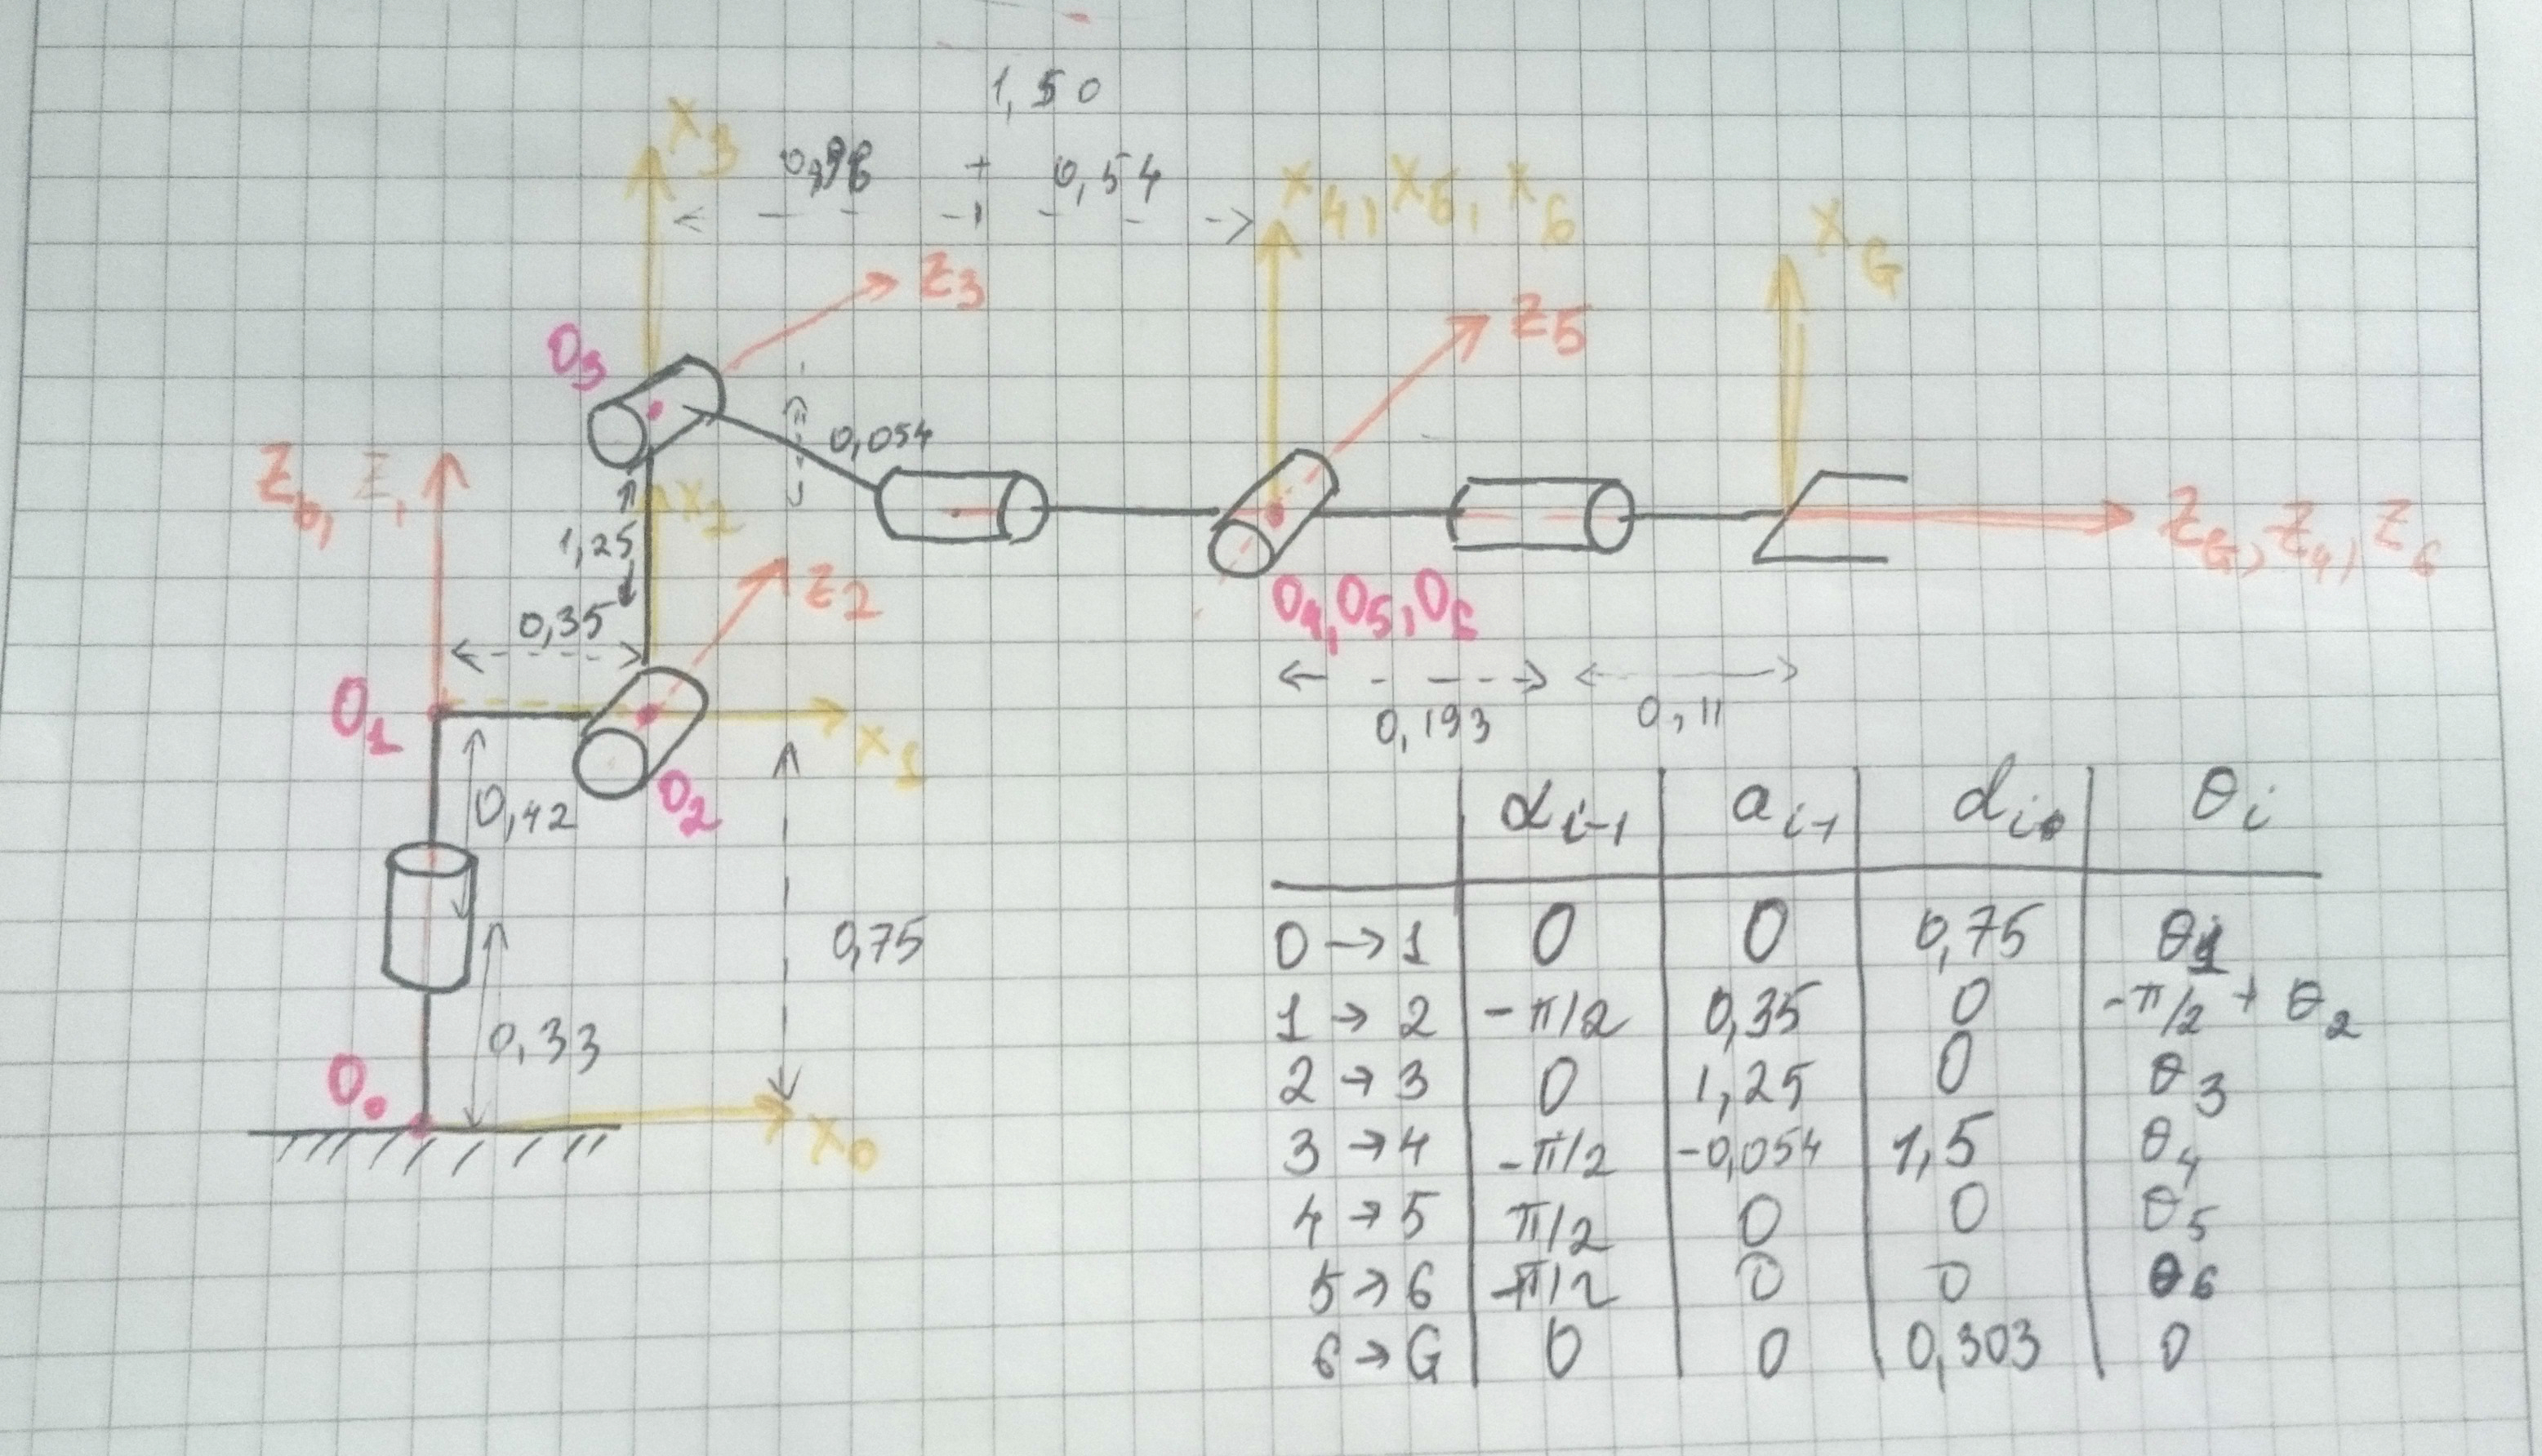 1,50
0,96 + 0,54
X3
X4, X5, X6
XG
Z3
Z5
O3
0,054
Z0, Z1
X2
1,25
Z2
ZG, Z4, Z6
O4, O5, O6
0,35
0,193
0,11
O1
X1
O2
0,42
0,75
0,33
O0
X0
αi-1 ai-1 di θi
0→1 0 0 0,75 θ1
1→2 -π/2 0,35 0 -π/2 + θ2
2→3 0 1,25 0 θ3
3→4 -π/2 -0,054 1,5 θ4
4→5 π/2 0 0 θ5
5→6 -π/2 0 0 θ6
6→G 0 0 0,303 0